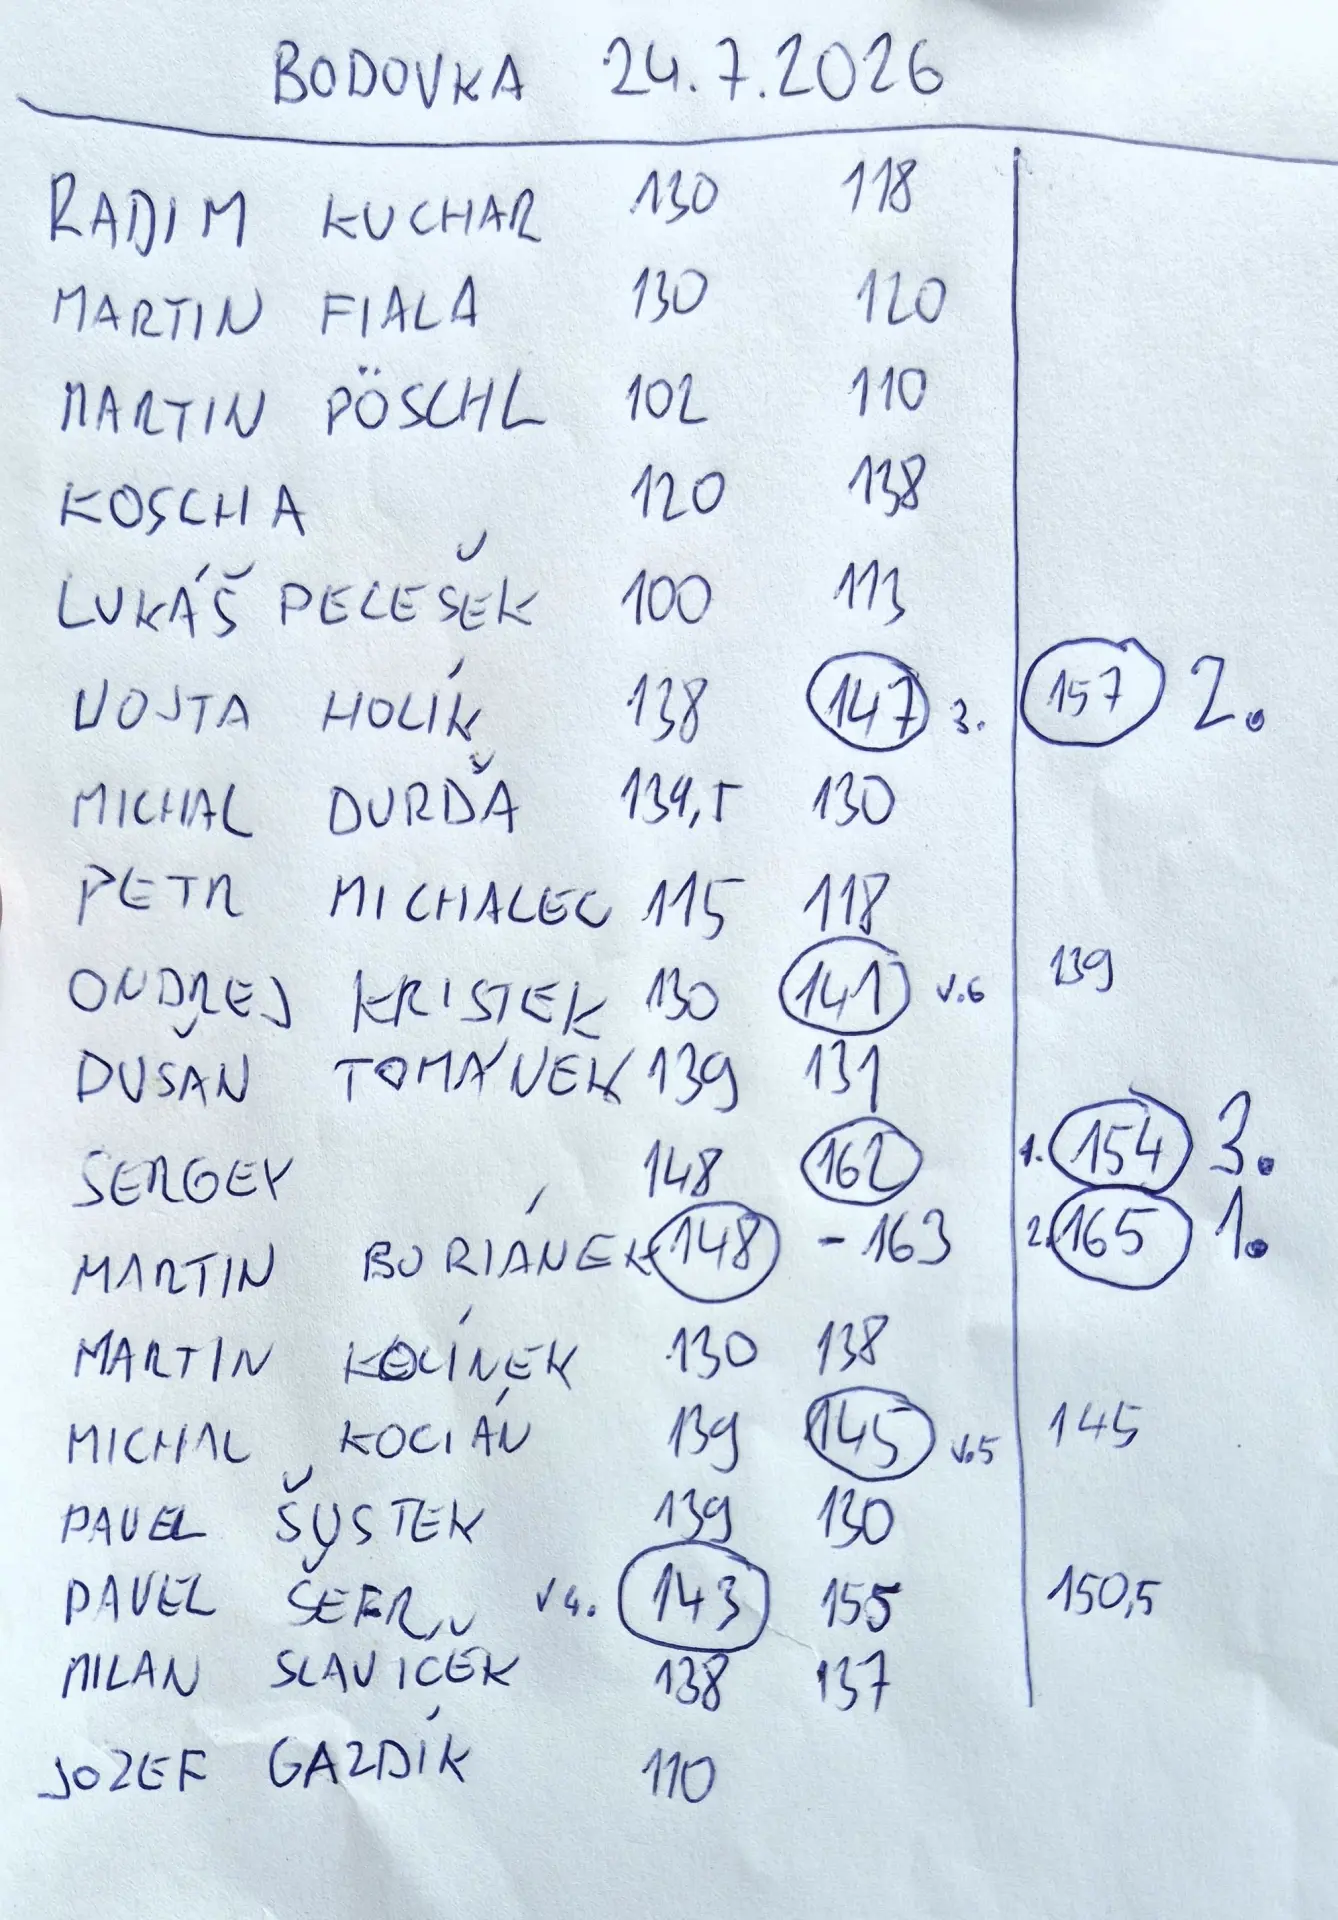 BODOVKA 24.7.2026
RADIM KUCHAR 130 118
MARTIN FIALA 130 120
MARTIN PÖSCHL 102 110
KOSCHA 120 138
LUKÁŠ PELEŠEK 100 113
VOJTA HOLÍK 138 147 3. 157 2.
MICHAL DURĎA 139,5 130
PETR MICHALEC 115 118
ONDŘEJ KRISTEK 130 141 v.6 139
DUŠAN TOMÁNEK 139 131
SERGEY 148 162 1. 154 3.
MARTIN BURIÁNEK 148 - 163 2. 165 1.
MARTIN KOLÍNEK 130 138
MICHAL KOCIÁN 139 145 v.5 145
PAVEL ŠUSTEK 139 130
PAVEL ŠEFR v4. 143 155 150,5
MILAN SLAVIČEK 138 137
JOZEF GAZDÍK 110